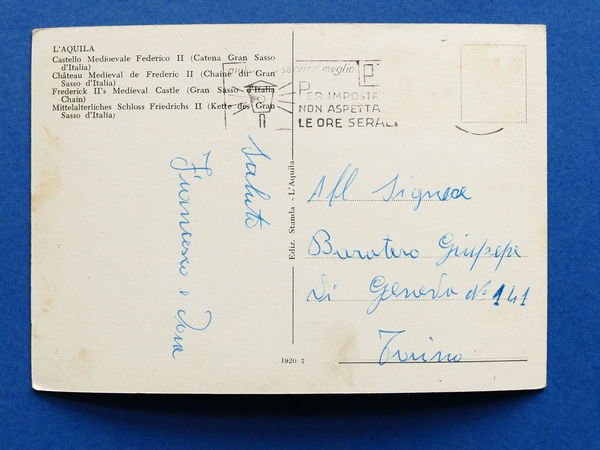 L'AQUILA
Castello Medioevale Federico II (Catena Gran Sasso
d'Italia)
Château Medieval de Frederic II (Chaine du Gran
Sasso d'Italia)
Frederick II's Medieval Castle (Gran Sasso d'Italia
Chain)
Mittelalterliches Schloss Friedrichs II (Kette des Gran
Sasso d'Italia)
servirvi meglio
PER IMPOSTA
NON ASPETTA
LE ORE SERALI
P
saluti
Francesco e
Ediz. Standa - L'Aquila
1920 5
All Signore
Giuseppe
Genova n° 141
Torino